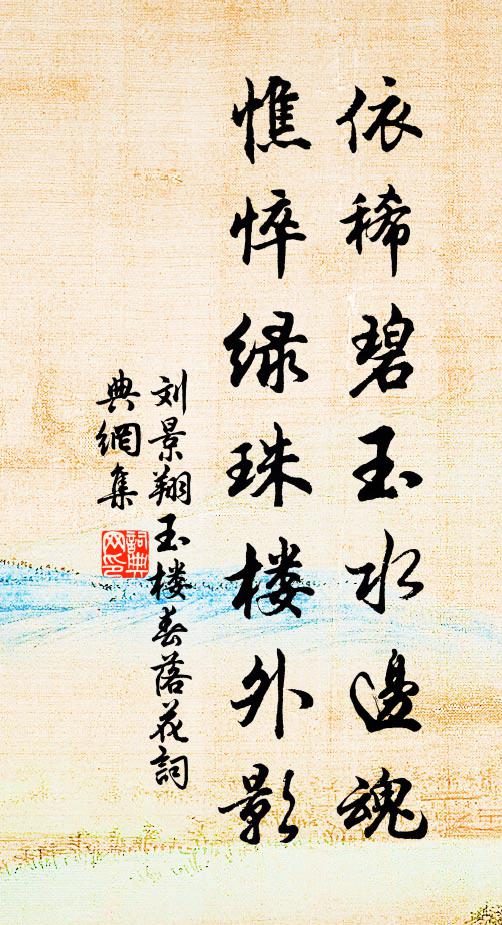 依稀碧玉水邊魂
憔悴绿珠楼外影
刘景翔玉楼春落花詞
典網集
詞典
网印